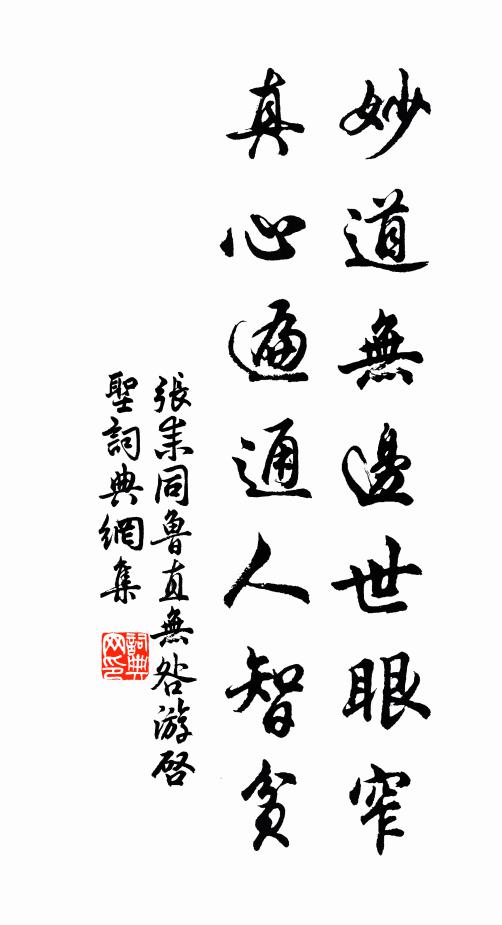 妙道無邊世眼窄
真心遍通人智貧
張耒同魯直無咎游啓
聖詞典網集
詞典
网印